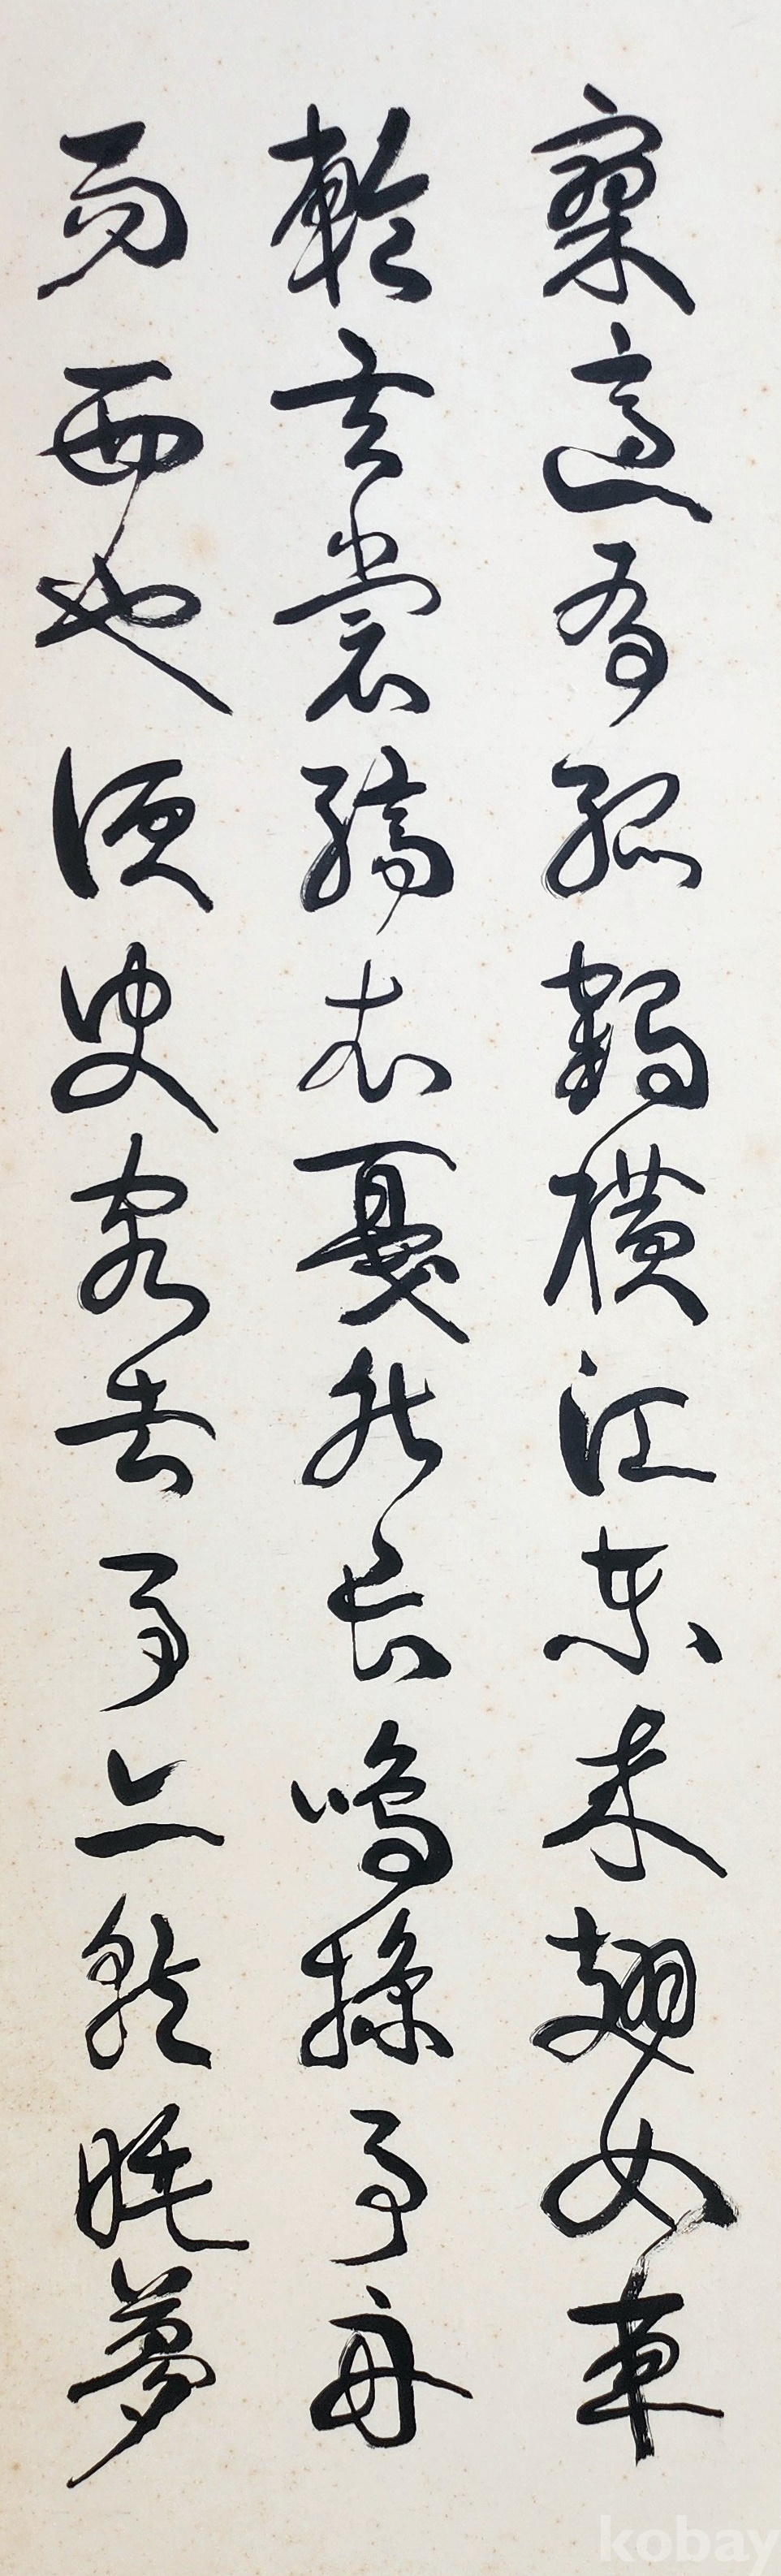 寥適有孤鶴橫江東來翅如車
輪玄裳縞衣戛然長鳴掠予舟
而西也須臾客去予亦就睡夢
kobay